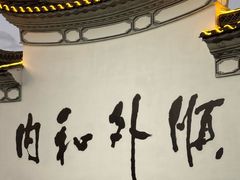 内和外顺